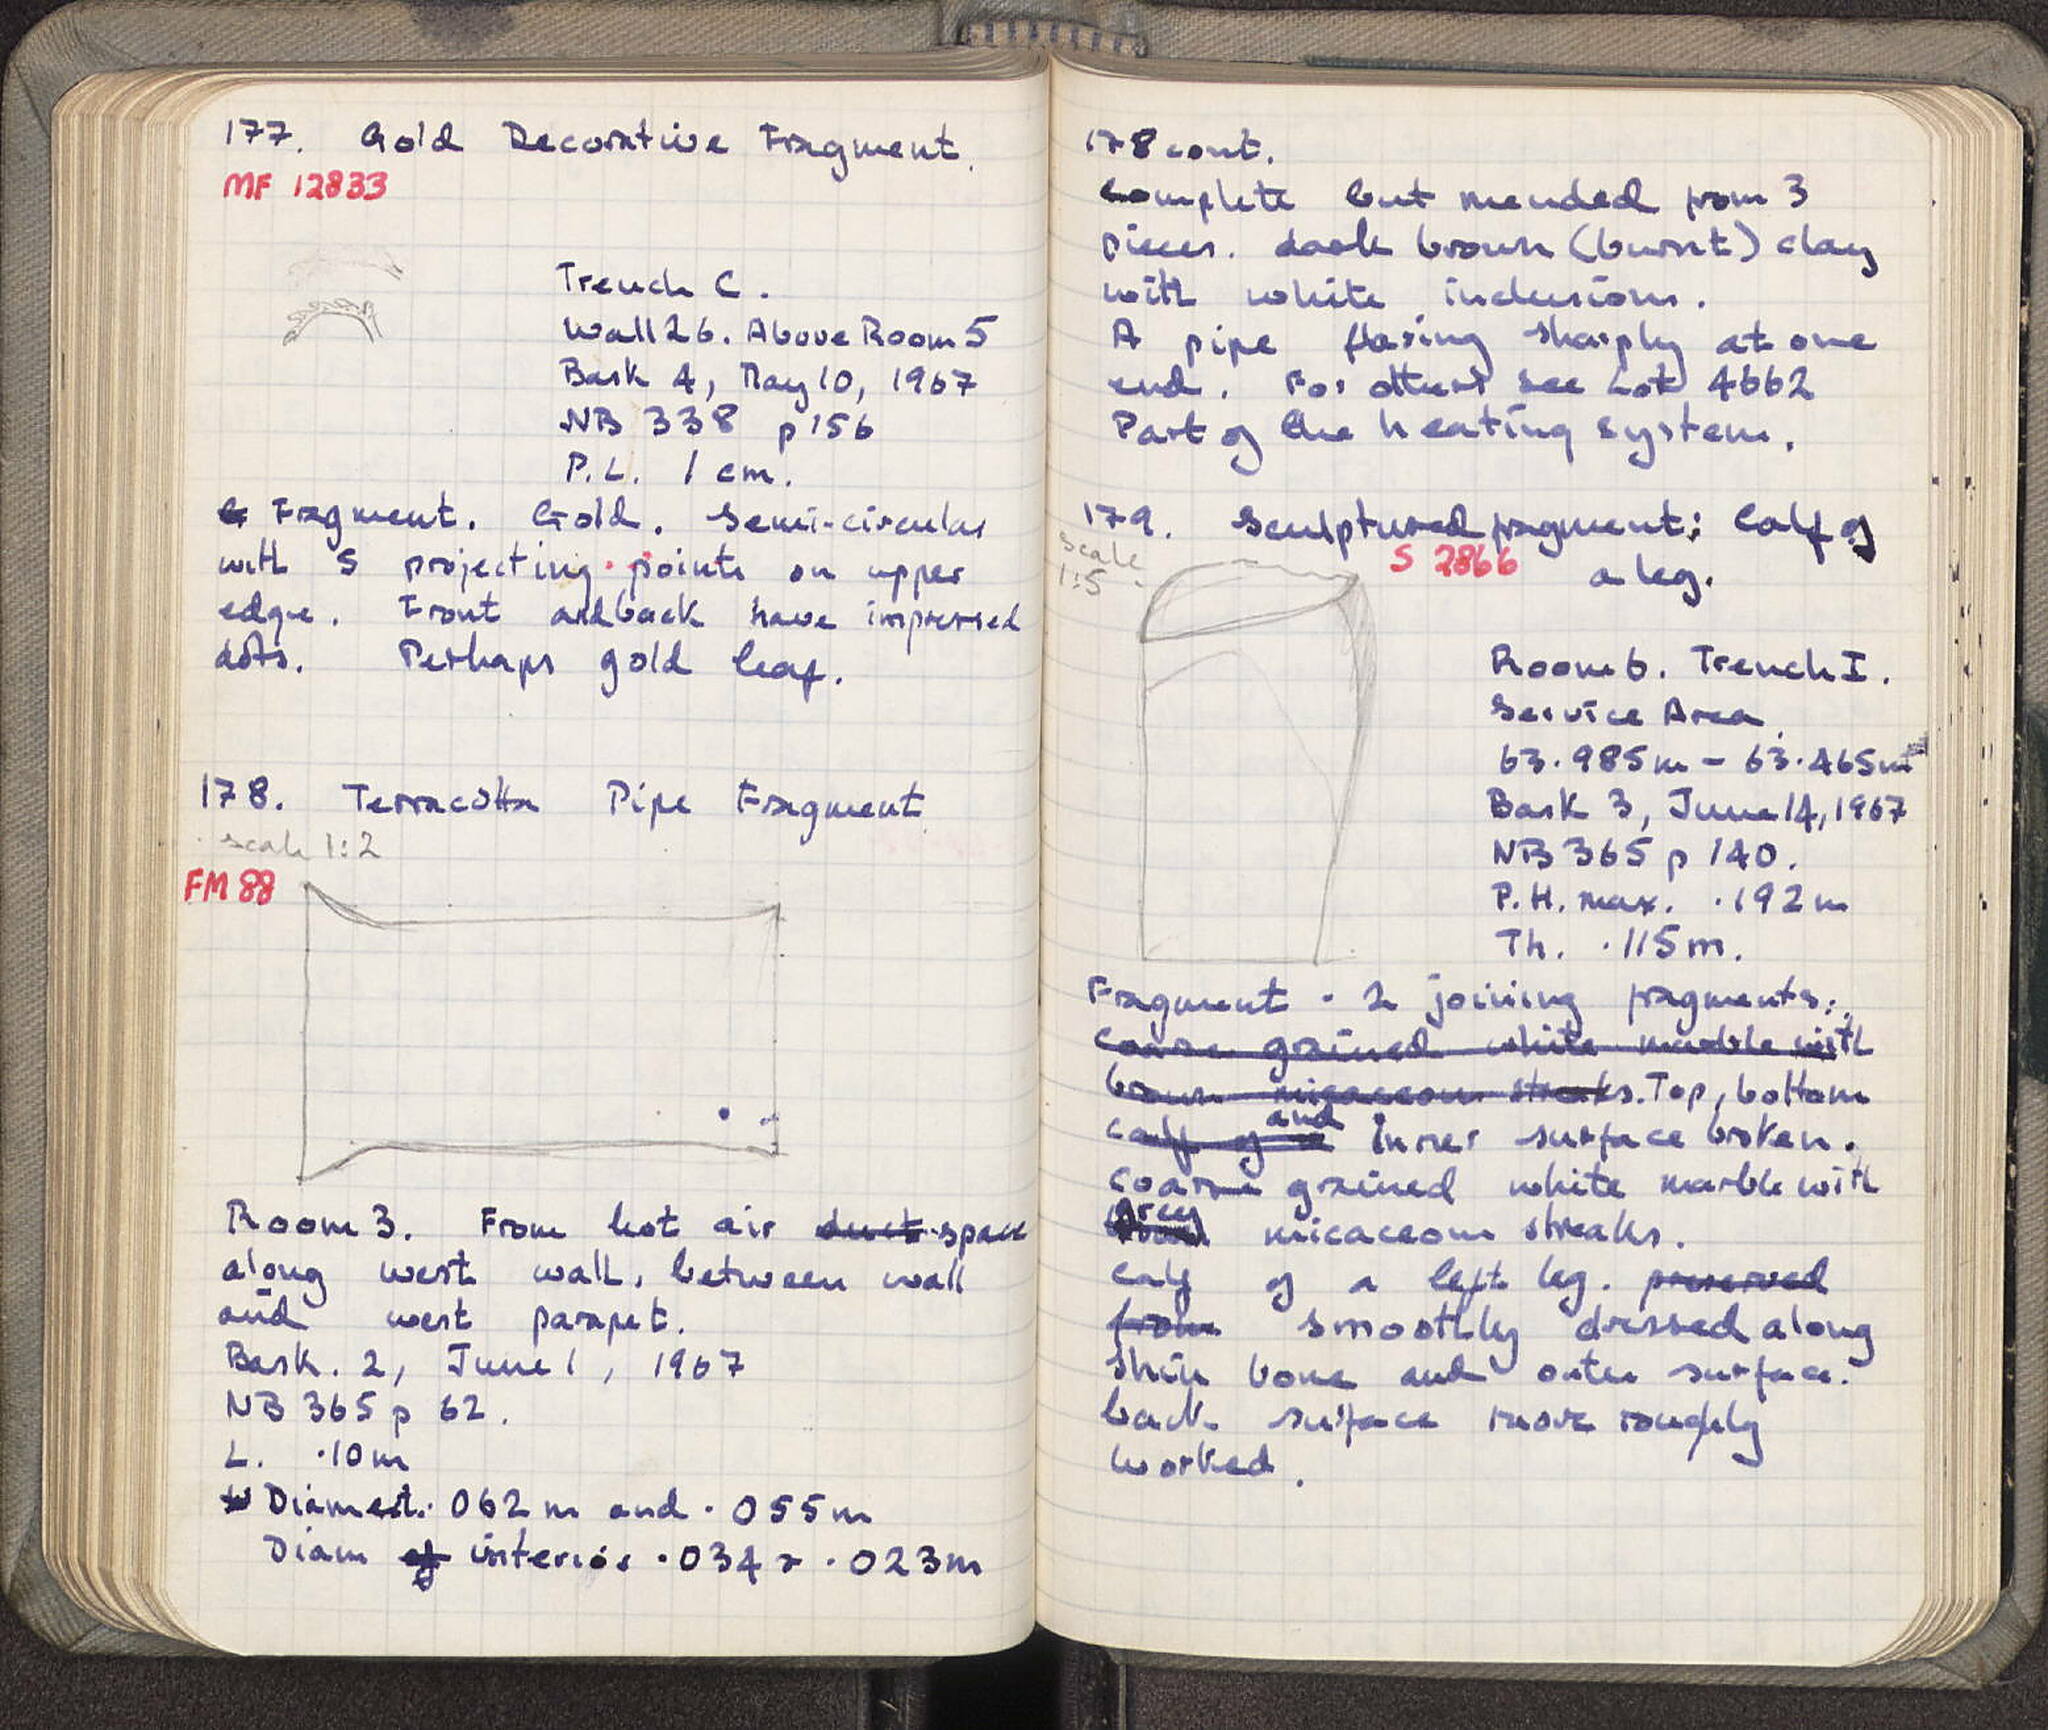 177. Gold Decorative Fragment.
MF 12833
Trench C.
Wall 26. Above Room 5
Bask 4, May 10, 1967
NB 338 p 156
P.L. 1 cm.
Fragment. Gold. Semi-circular
with 5 projecting points on upper
edge. Front and back have impressed
dots. Perhaps gold leaf.
178. Terracotta Pipe Fragment
scale 1:2
FM 88
Room 3. From hot air duct space
along west wall, between wall
and west parapet.
Bask. 2, June 1, 1967
NB 365 p 62.
L. .10m
Diamet. .062m and .055m
Diam of interior .034 & .023m
178 cont.
Complete but mended from 3
pieces. dark brown (burnt) clay
with white inclusions.
A pipe flaring sharply at one
end. For others see Lot 4662
Part of the heating system.
179. Sculptured fragment: Calf of
S 2866 a leg.
scale
1:5
Room 6. Trench I.
Service Area
63.985m - 63.465m
Bask 3, June 14, 1967
NB 365 p 140.
P.H. max. .192m
Th. .115m.
Fragment. 2 joining fragments.
coarse grained white marble with
brown micaceous streaks. Top, bottom
calf of a and inner surface broken.
coarse grained white marble with
grey micaceous streaks.
calf of a left leg. preserved
from smoothly dressed along
shin bone and outer surface.
back surface more roughly
worked.